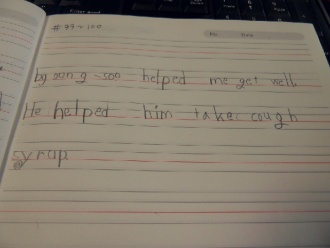 # 99~100
No.
byoung-soo helped me get well
He helped him take cough
syrup